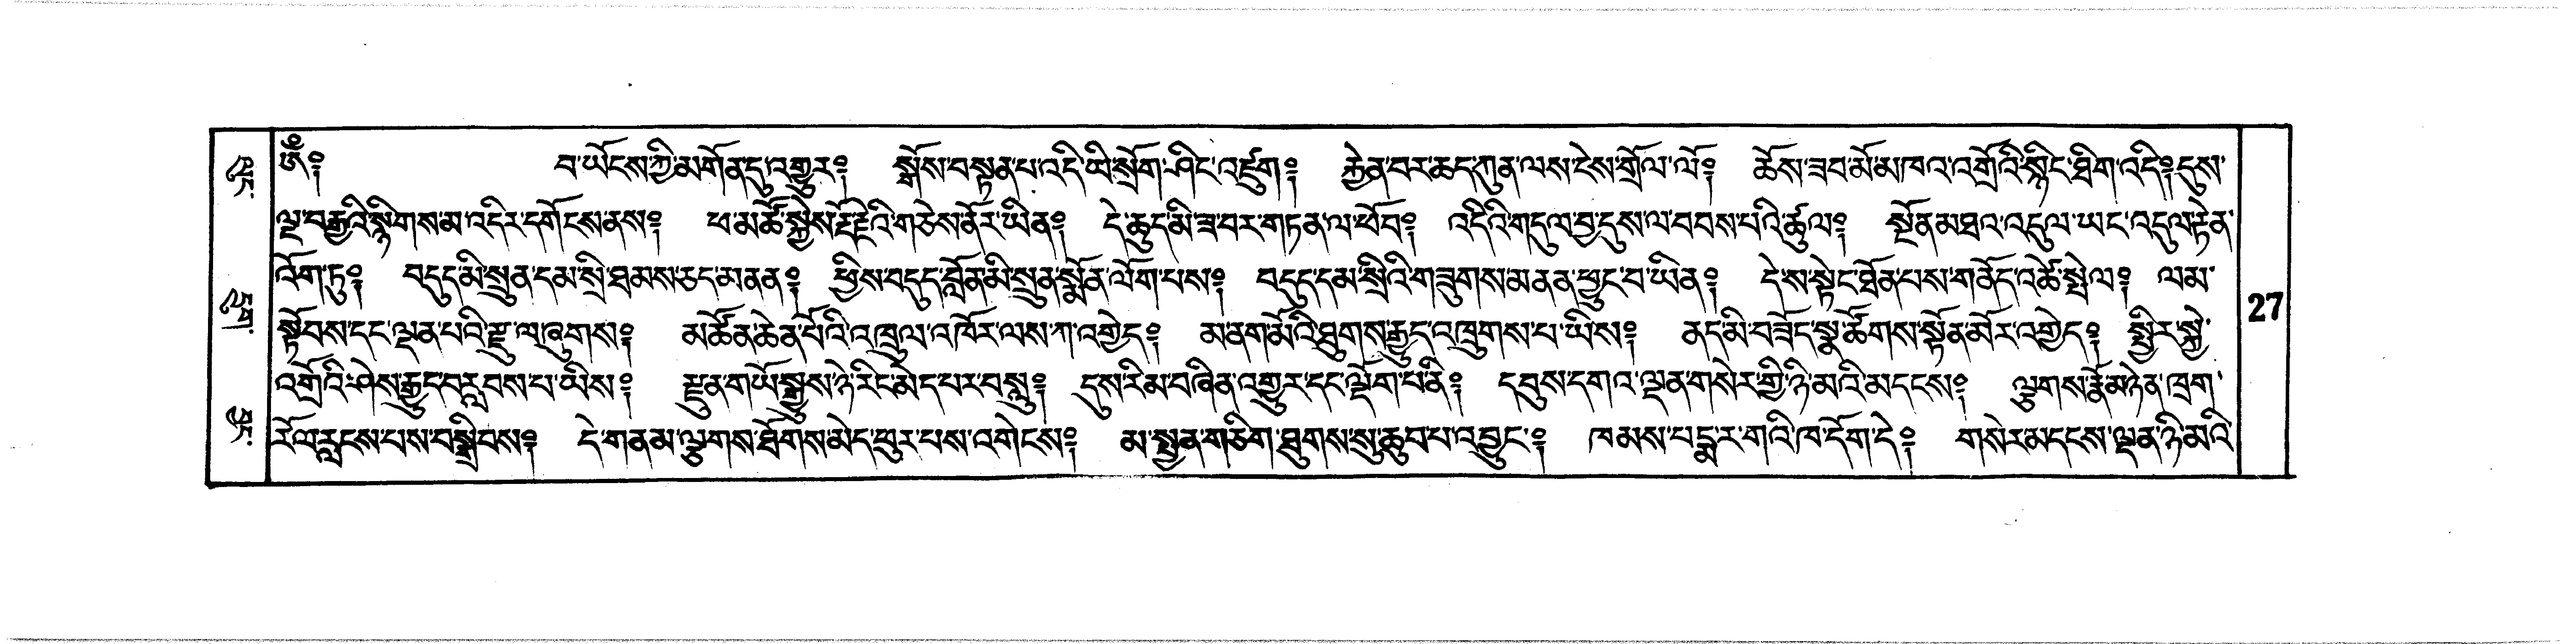 ༄༅༔ བ་ཡོངས་ཀྱི་མགོན་དུ་འགྱུར༔ སྒོས་བསྟན་པ་འདི་ཡི་སྲོག་ཤིང་འཛུག༔ རྐྱེན་བར་ཆད་ཀུན་ལས་ངེས་གྲོལ་ལོ༔ ཆོས་ཟབ་མོ་མཁའ་འགྲོའི་སྙིང་ཐིག་འདི༔ དུས་
ལྔ་བརྒྱའི་སྙིགས་མ་འདིར་དགོངས་ནས༔ ཕ་མཚོ་སྐྱེས་རྡོ་རྗེའི་གཅེས་ནོར་ཡིན༔ དེ་ཆུད་མི་ཟ་བར་གཏན་ལ་ཕོབ༔ འདིའི་གདུལ་བྱ་དུས་ལ་བབས་པའི་ཚུལ༔ སྔོན་མཐའ་འདུལ་ཡང་འདུལ་རྟེན་
འོག་ཏུ༔ བདུད་མི་སྲུན་དམ་སྲི་ཐམས་ཅད་མནན༔ ཕྱིས་བདུད་བློན་མི་སྲུན་སྨོན་ལོག་པས༔ བདུད་དམ་སྲིའི་གཟུགས་མནན་ཕྱུང་བ་ཡིན༔ དེ་ས་སྟེང་ཐོན་པས་གནོད་འཚེ་སྤེལ༔ ལམ་
སྟོབས་དང་ལྡན་པའི་རྔུ་ལ་ཞུགས༔ མཚོན་ཆེན་པོའི་འཁྲུལ་འཁོར་ལས་ཀ་འགྱེད༔ མ་ནག་མོའི་ཐུགས་རྒྱུད་འཁྲུགས་པ་ཡིས༔ ནད་མི་བཟོད་སྣ་ཚོགས་སྟོན་མོར་འགྱེད༔ སྤྱིར་སྐྱེ་
འགྲོའི་ཤེས་རྒྱུད་བརླབས་པ་ཡིས༔ རྫུན་གཡོ་སྒྱུས་ཉེ་རིང་མེད་པར་བསླུ༔ དུས་རིམ་བཞིན་འགྱུར་དང་ལྡོག་པ་ནི༔ དབུས་དགའ་ལྡན་གསེར་གྱི་ཉི་མའི་མདངས༔ ལྕགས་རྣོ་མཉེན་ཁྲག་
རོ་རླངས་པས་བསྒྲིབས༔ དེ་གནམ་ལྕགས་ཐོགས་མེད་ཕུར་པས་འགེངས༔ མ་སྤྱན་གཅིག་ཐུགས་སུ་ཆུབ་པ་འབྱུང༔ ཁམས་པདྨ་ར་གའི་ཁ་དོག་དེ༔ གསེར་མདངས་ལྡན་ཉི་མའི་
27